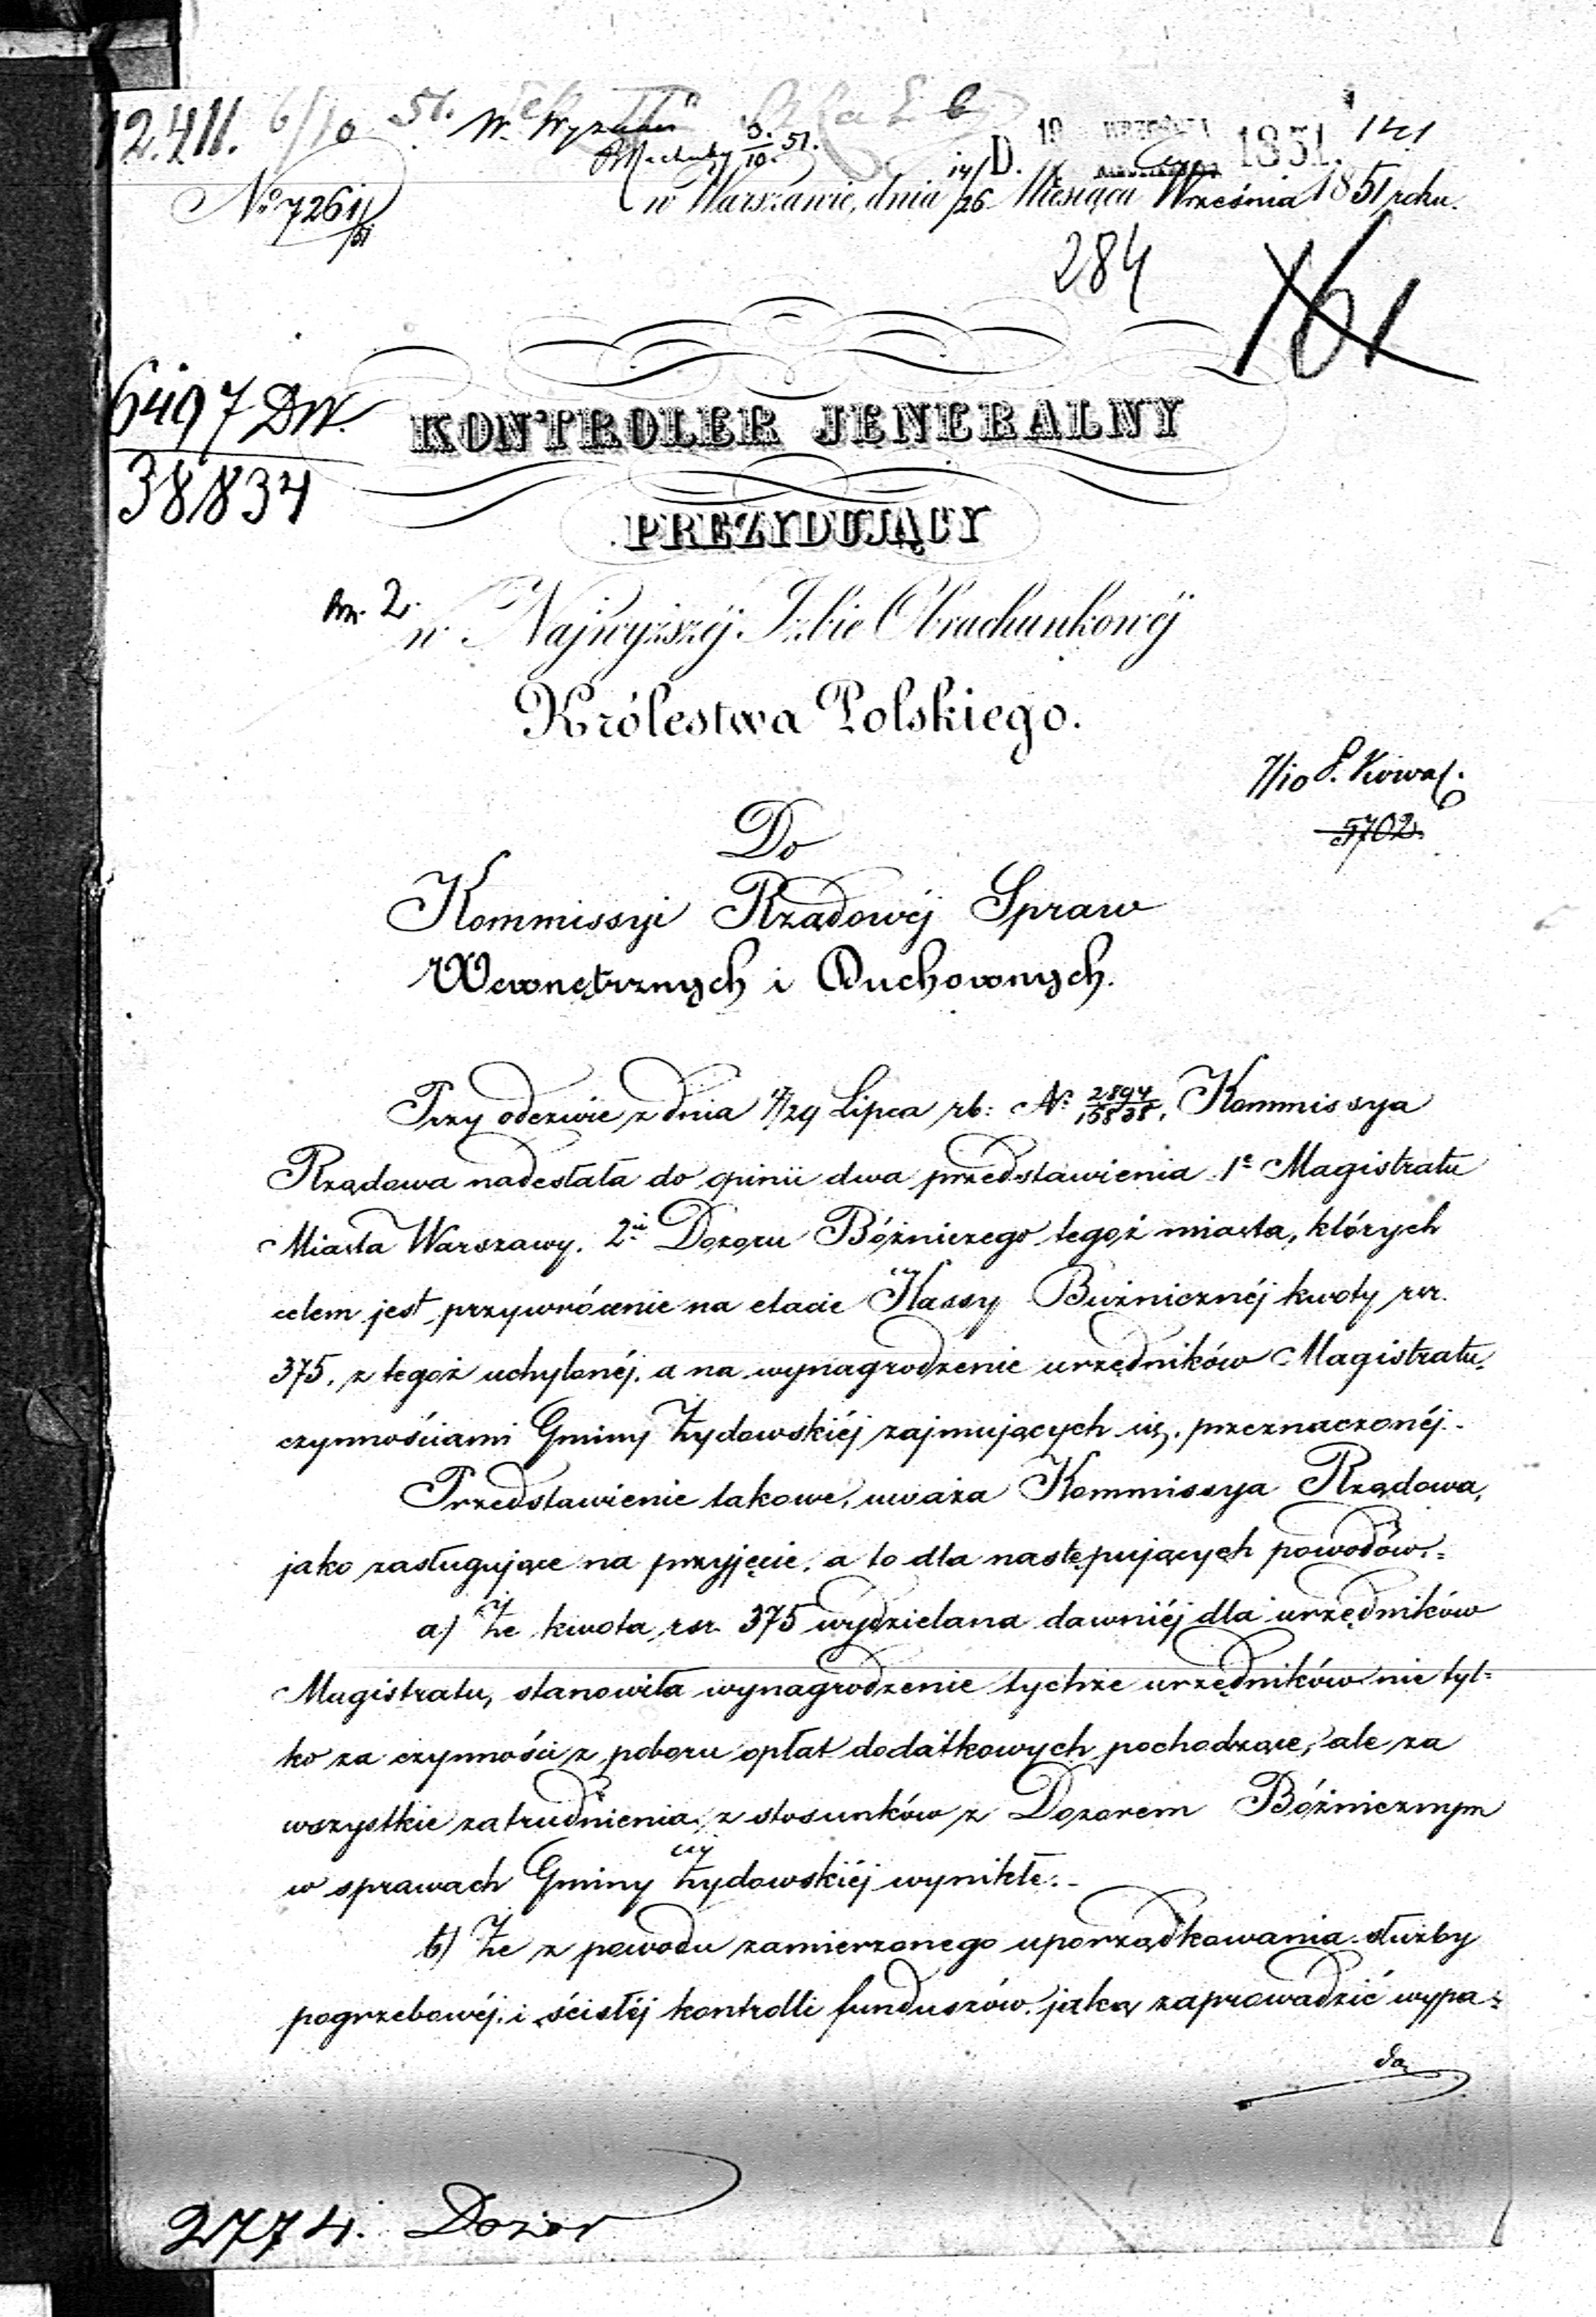 12.411. 6/10 51. W. Wyznań
3./10. 51.
D. 19 WRZEŚNIA 1851. 141
No 7261/51
w Warszawie, dnia 14/26 Miesiąca Września 1851 roku.
284
161
6497 DW.
38834
KONTROLER JENERALNY
PREZYDUJĄCY
2.
w Najwyższéj Izbie Obrachunkowéj
Królestwa Polskiego.
7/10 P. Kowal.
5702.
Do
Kommissyi Rządowéj Spraw
Wewnętrznych i Duchownych.
Przy odezwie z dnia 17/29 Lipca rb: No 2894/15838, Kommissya
Rządowa nadesłała do opinii dwa przedstawienia 1e Magistratu
Miasta Warszawy, 2ie Dozoru Bóżniczego tegoż miasta, których
celem jest przywrócenie na etacie Kassy Bużnicznéj kwoty rsr.
375, z tegoż uchylonéj, a na wynagrodzenie urzędników Magistratu,
czynnościami Gminy Żydowskiéj zajmujących się, przeznaczonéj.-
Przedstawienie takowe, uważa Kommissya Rządowa,
jako zasługujące na przyjęcie, a to dla następujących powodów:=
a) Że kwota rsr. 375 wydzielana dawniéj dla urzędników
Magistratu, stanowiła wynagrodzenie tychże urzędników nie tyl=
ko za czynności z poboru opłat dodatkowych pochodzące, ale za
wszystkie zatrudnienia, z stosunków z Dozorem Bóżnicznym
w sprawach Gminy Żydowskiéj wynikłe.-
b) Że z powodu zamierzonego uporządkowania służby
pogrzebowéj, i ścisłéj kontrolli funduszów, jaką zaprowadzić wypa=
da
2774. Dozór